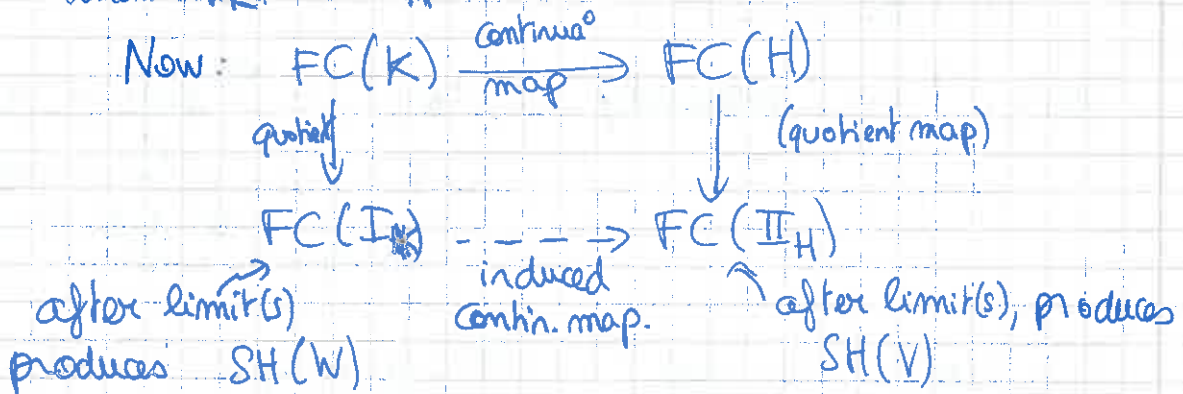 Now: FC(K) continua° map → FC(H)
quotient (quotient map)
FC(I_K) - - - → FC(II_H)
induced contin. map.
after limit(s) produces SH(W)
after limit(s), produces SH(V)